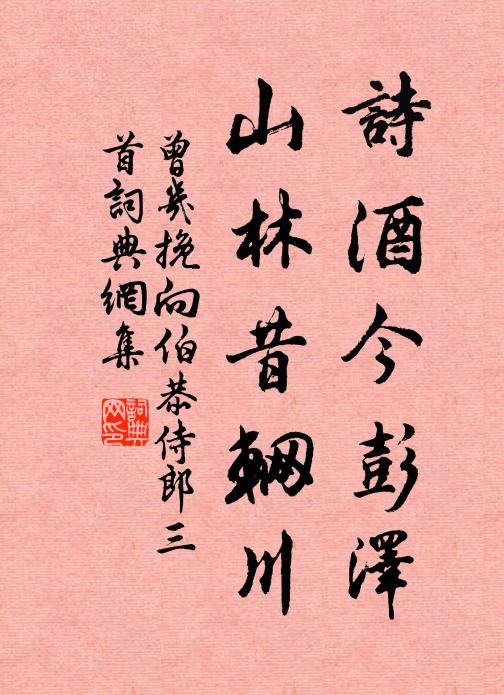 詩酒今彭澤
山林昔輞川
曾幾挽向伯恭侍郎三
首詞典網集
詞典
网印